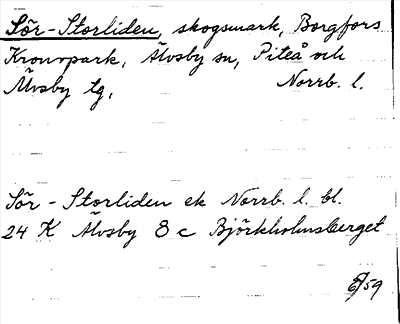 Sör-Storliden, skogsmark, Borgfors
Kronopark, Älvsby sn, Piteå och
Älvsby tg, Norrb. l.
Sör-Storliden ek Norrb. l. bl.
24 K Älvsby 8 c Björkholmsberget
59